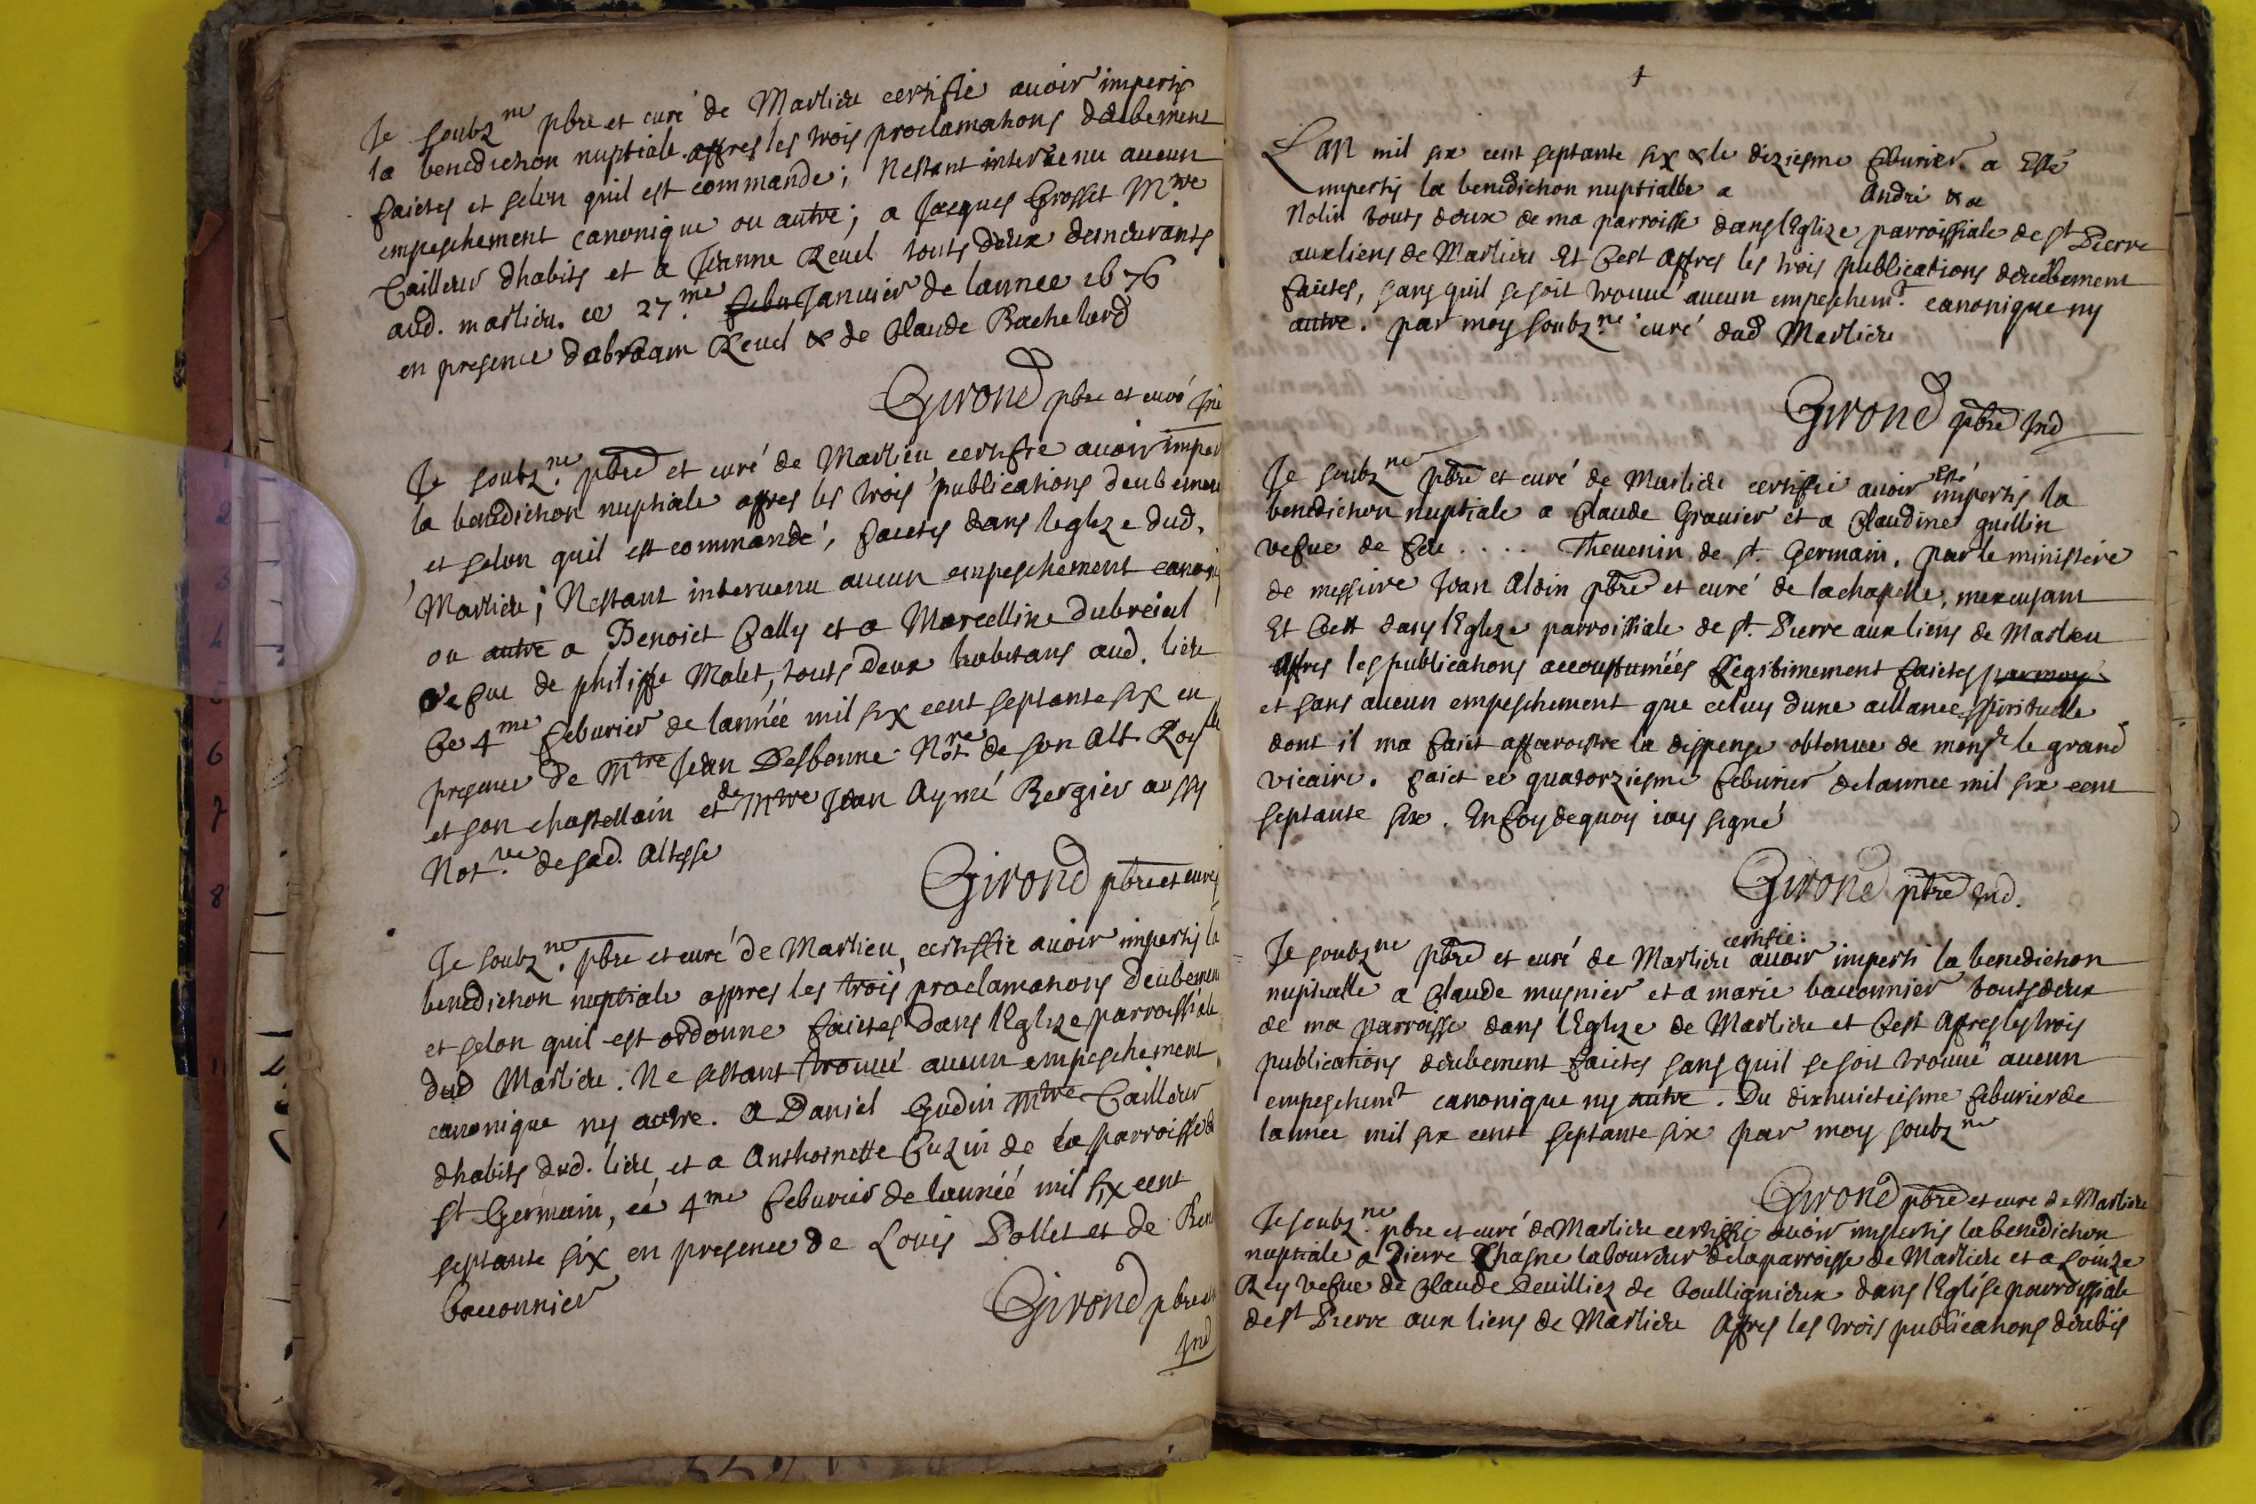 Je soubz.ne pbre et curé de Marlieu certifie avoir impertis
la benediction nuptiale apres les trois proclamations deubement
faictes et selon quil est commandé; Nestant intervenu aucun
empeschement canonique ou autre; a Jacques Grosset Mtre
Tailleur dhabits et a Jeanne Revel touts deux demeurants
aud. marlieu. ce 27.me Janvier de lannee 1676
en presence dabraam Revel & de Claude Bachelard
Girond pbre et curé Ind
Je soubz.ne pbre et curé de Marlieu certifie avoir imper
la benediction nuptiale apres les trois publications deubement
et selon quil est commandé, faictes dans leglize dud.
Marlieu; Nestant intervenu aucun empeschement canoni
ou autre a Benoict Cally et a Marcelline dubreiul
vefue de philippe Malet, touts deux habitans aud. lieu
Ce 4me feburier de lannéé mil six cent septante six en
presence de Mtre Jean Desbonne Notre de son Alt. Roylle
et son chastellain et de Mtre Jean Aymé Bergier aussy
Not.re de sad. Altesse
Girond pbre et curé
Je soubz.ne pbre et curé de Marlieu, certiffie avoir impertis la
benediction nuptiale appres les trois proclamations deubement
et selon quil est ordonne faictes dans lEglize parroissiale
dud Marlieu. Ne sestant trouué aucun empeschement
canonique ny autre. A Daniel Gudin Mtre Tailleur
dhabits dud. lieu, et a Anthoinette Cuzin de la parroisse de
st Germain, ce 4me feburier de lannéé mil six cent
septante six en presence de Lovis Pollet et de Ben
bauonnier
Girond pbre
Ind
1
Lan mil six cent septante six & le dixiesme feburier. a Esté
impertis la benediction nuptialle a André & a
Nolin touts deux de ma parroisse dans lEglize parroissiale de st Pierre
aux liens de Marlieu Et Cest Apres les trois publications deuebement
faictes, sans quil se soit trouué aucun empeschemt. canonique ny
autre. par moy soubz.ne curé dud Marlieu
Girond pbre Ind
Je soubzne pbre et curé de Marlieu certifie avoir Esté impertis la
benediction nuptiale a Claude Gravier et a Claudine guillin
vefue de feu .... Thevenin de st. Germain. par le ministere
de messire Jean Aloin pbre et curé de lachapelle, mexcusant
Et Cest dans lEglize parroissiale de st. Pierre aux liens de Marlieu
Apres les publications accoustumées Legitimement faictes par moy
et sans aucun empeschement que celuy dune aillance spirituelle
dont il ma faict apparoistre la dispense obtenue de monsr le grand
vicaire. faict ce quatorziesme feburier de lannee mil six cent
septante six. En foy de quoy iay signé
Girond pbre Ind.
Je soubzne pbre et curé de Marlieu certifie: avoir imperti la benediction
nuptialle a Claude musnier et a marie bauonnier touts deux
de ma parroisse dans lEglize de Marlieu et Cest Apres les trois
publications deubement faictes sans quil se soit trouué aucun
empeschemt canonique ny autre. Du dixhuictiesme feburier de
lannee mil six cent septante six par moy soubzne
Girond pbre et cure de Marlieu
Je soubz.ne pbre et curé de Marlieu certiffie avoir impertis la benediction
nuptiale a Pierre Chasne laboureur de la parroisse de Marlieu et a Louize
Rey vefue de Claude Devilliez de toullignieux dans lEglise parroissiale
de st Pierre aux liens de Marlieu Apres les trois publications deubës